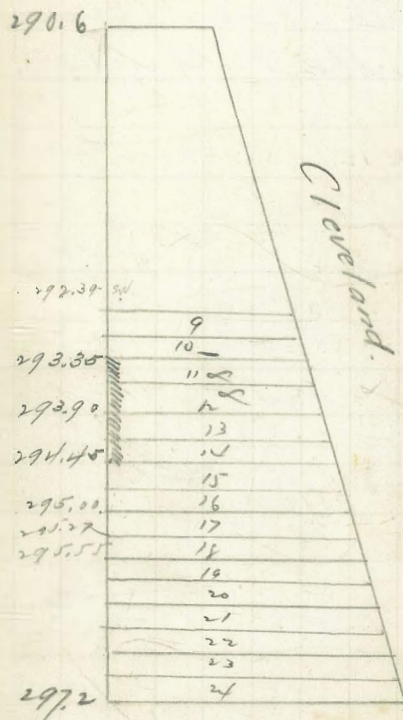 290.6
Cleveland.
292.39 SW
9
10
293.35
11 8
8
293.90
12
13
294.45
14
15
295.00
16
295.27
17
295.55
18
19
20
21
22
23
24
297.2